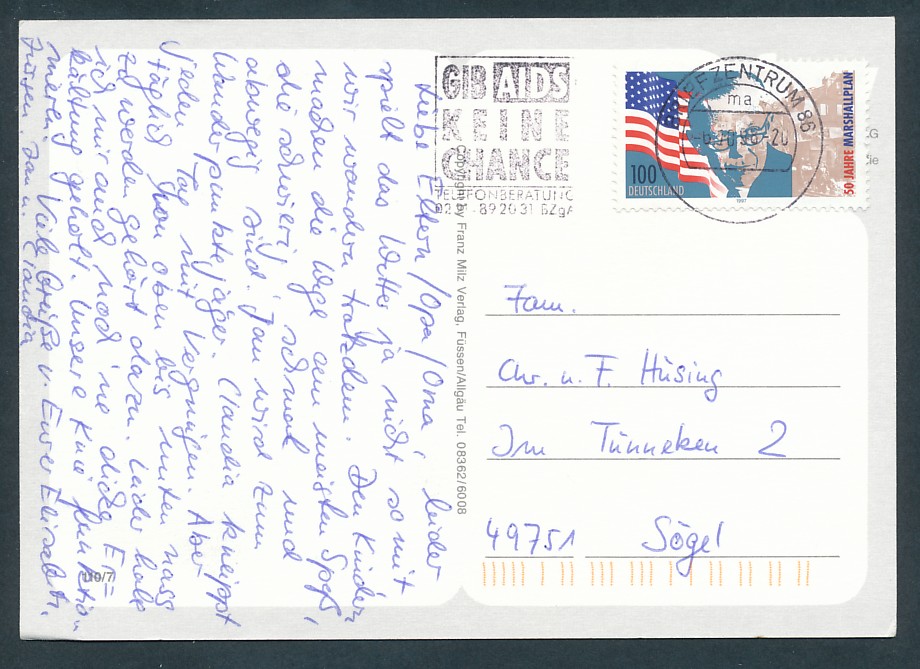 Liebe Eltern/Opa/Oma, leider
spielt das Wetter ja nicht so mit
wir wandern trotzdem. Den Kindern
machen die Wege am meisten Spaß,
die schwierig, schmal und
abwegig sind. Jan wird zum
Wanderpunktejäger. Claudia kneippt
jeden Tag mit Vergnügen. Aber
täglich von oben bis unten nass
zu werden gehört dazu. Leider habe
ich mir auch noch ne dicke Er-
kältung geholt. Unsere Knie funktio-
nieren. Viele Grüße v. Eurer Elisabeth,
Jürgen, Jan u. Claudia
U9/7
Copyright by Franz Milz Verlag, Füssen/Allgäu Tel. 08362/6008
GIB AIDS
KEINE
CHANCE
TELEFONBERATUNG
89 20 31 BZgA
BRIEFZENTRUM 86
ma
100
DEUTSCHLAND
1997
50 JAHRE MARSHALLPLAN
Fam.
Chr. u. F. Hüsing
Im Tünneken 2
49751 Sögel